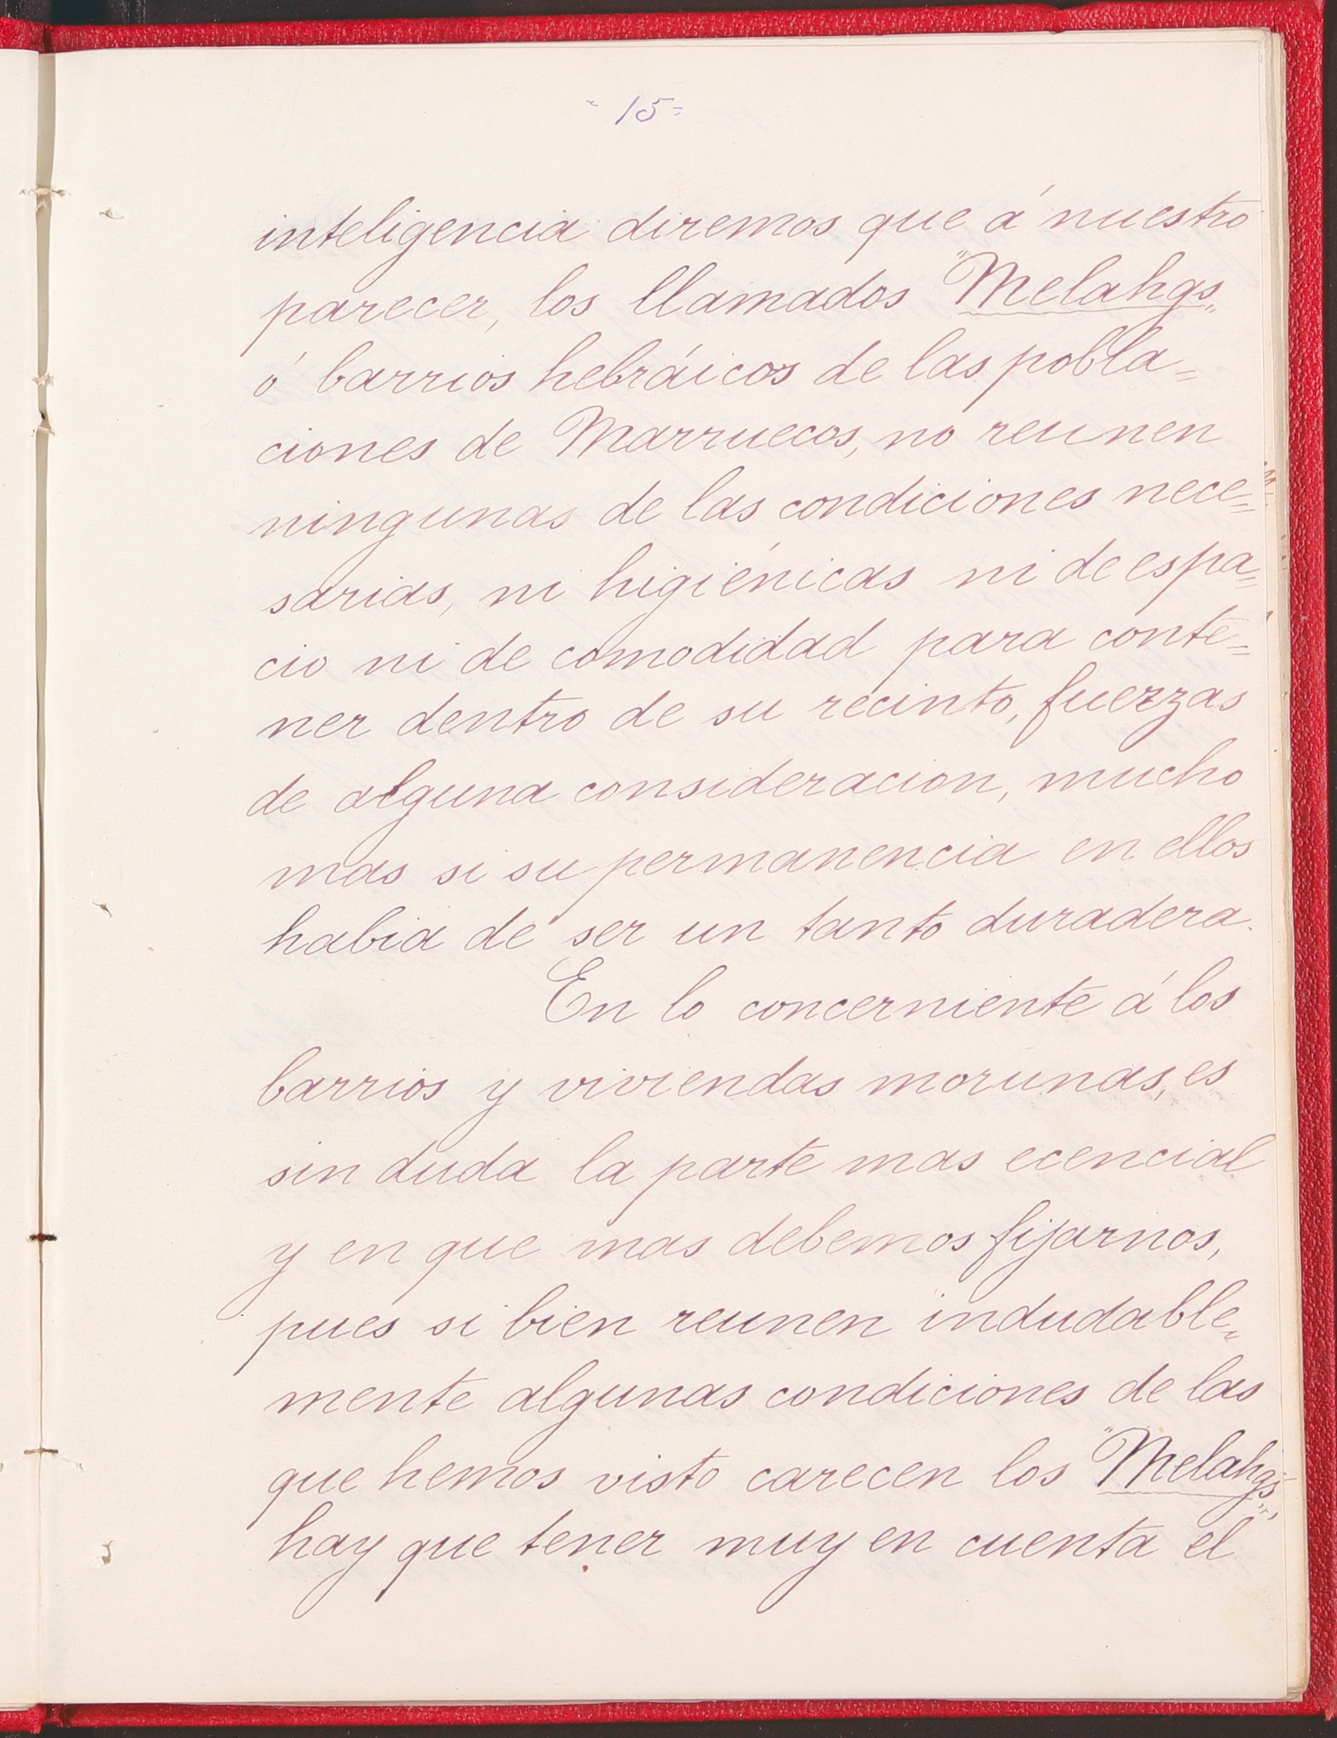 - 15 =
inteligencia diremos que á nuestro
parecer, los llamados "Melahgs"
ó barrios hebráicos de las pobla=
ciones de Marruecos, no reunen
ningunas de las condiciones nece=
sarias, ni higiénicas ni de espa=
cio ni de comodidad para conte=
ner dentro de su recinto, fuerzas
de alguna consideracion, mucho
mas si su permanencia en ellos
habia de ser un tanto duradera.
En lo concerniente á los
barrios y viviendas morunas, es
sin duda la parte mas ecencial
y en que mas debemos fijarnos,
pues si bien reunen indudable=
mente algunas condiciones de las
que hemos visto carecen los "Melahgs",
hay que tener muy en cuenta el